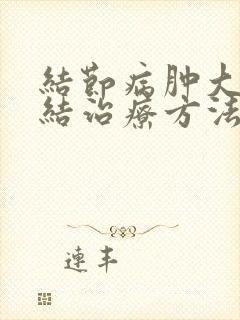 結節病肿大
結治療方法
連丰